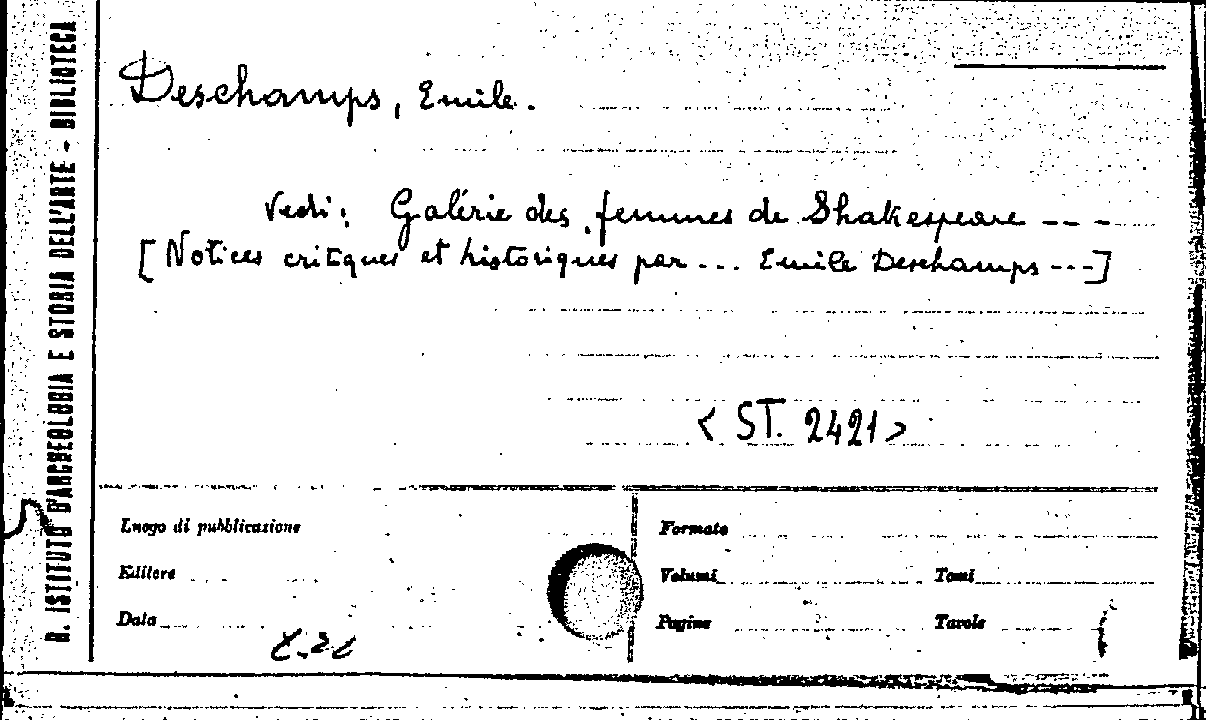 R. ISTITUTO D'ARCHEOLOGIA E STORIA DELL'ARTE - BIBLIOTECA
Deschamps, Emile.
Vedi: Galérie des femmes de Shakespeare ---
[Notices critiques et historiques par... Emile Deschamps ---]
< ST. 2421 >
Luogo di pubblicazione
Editore
Data
Formato
Volumi Tomi
Pagine Tavole